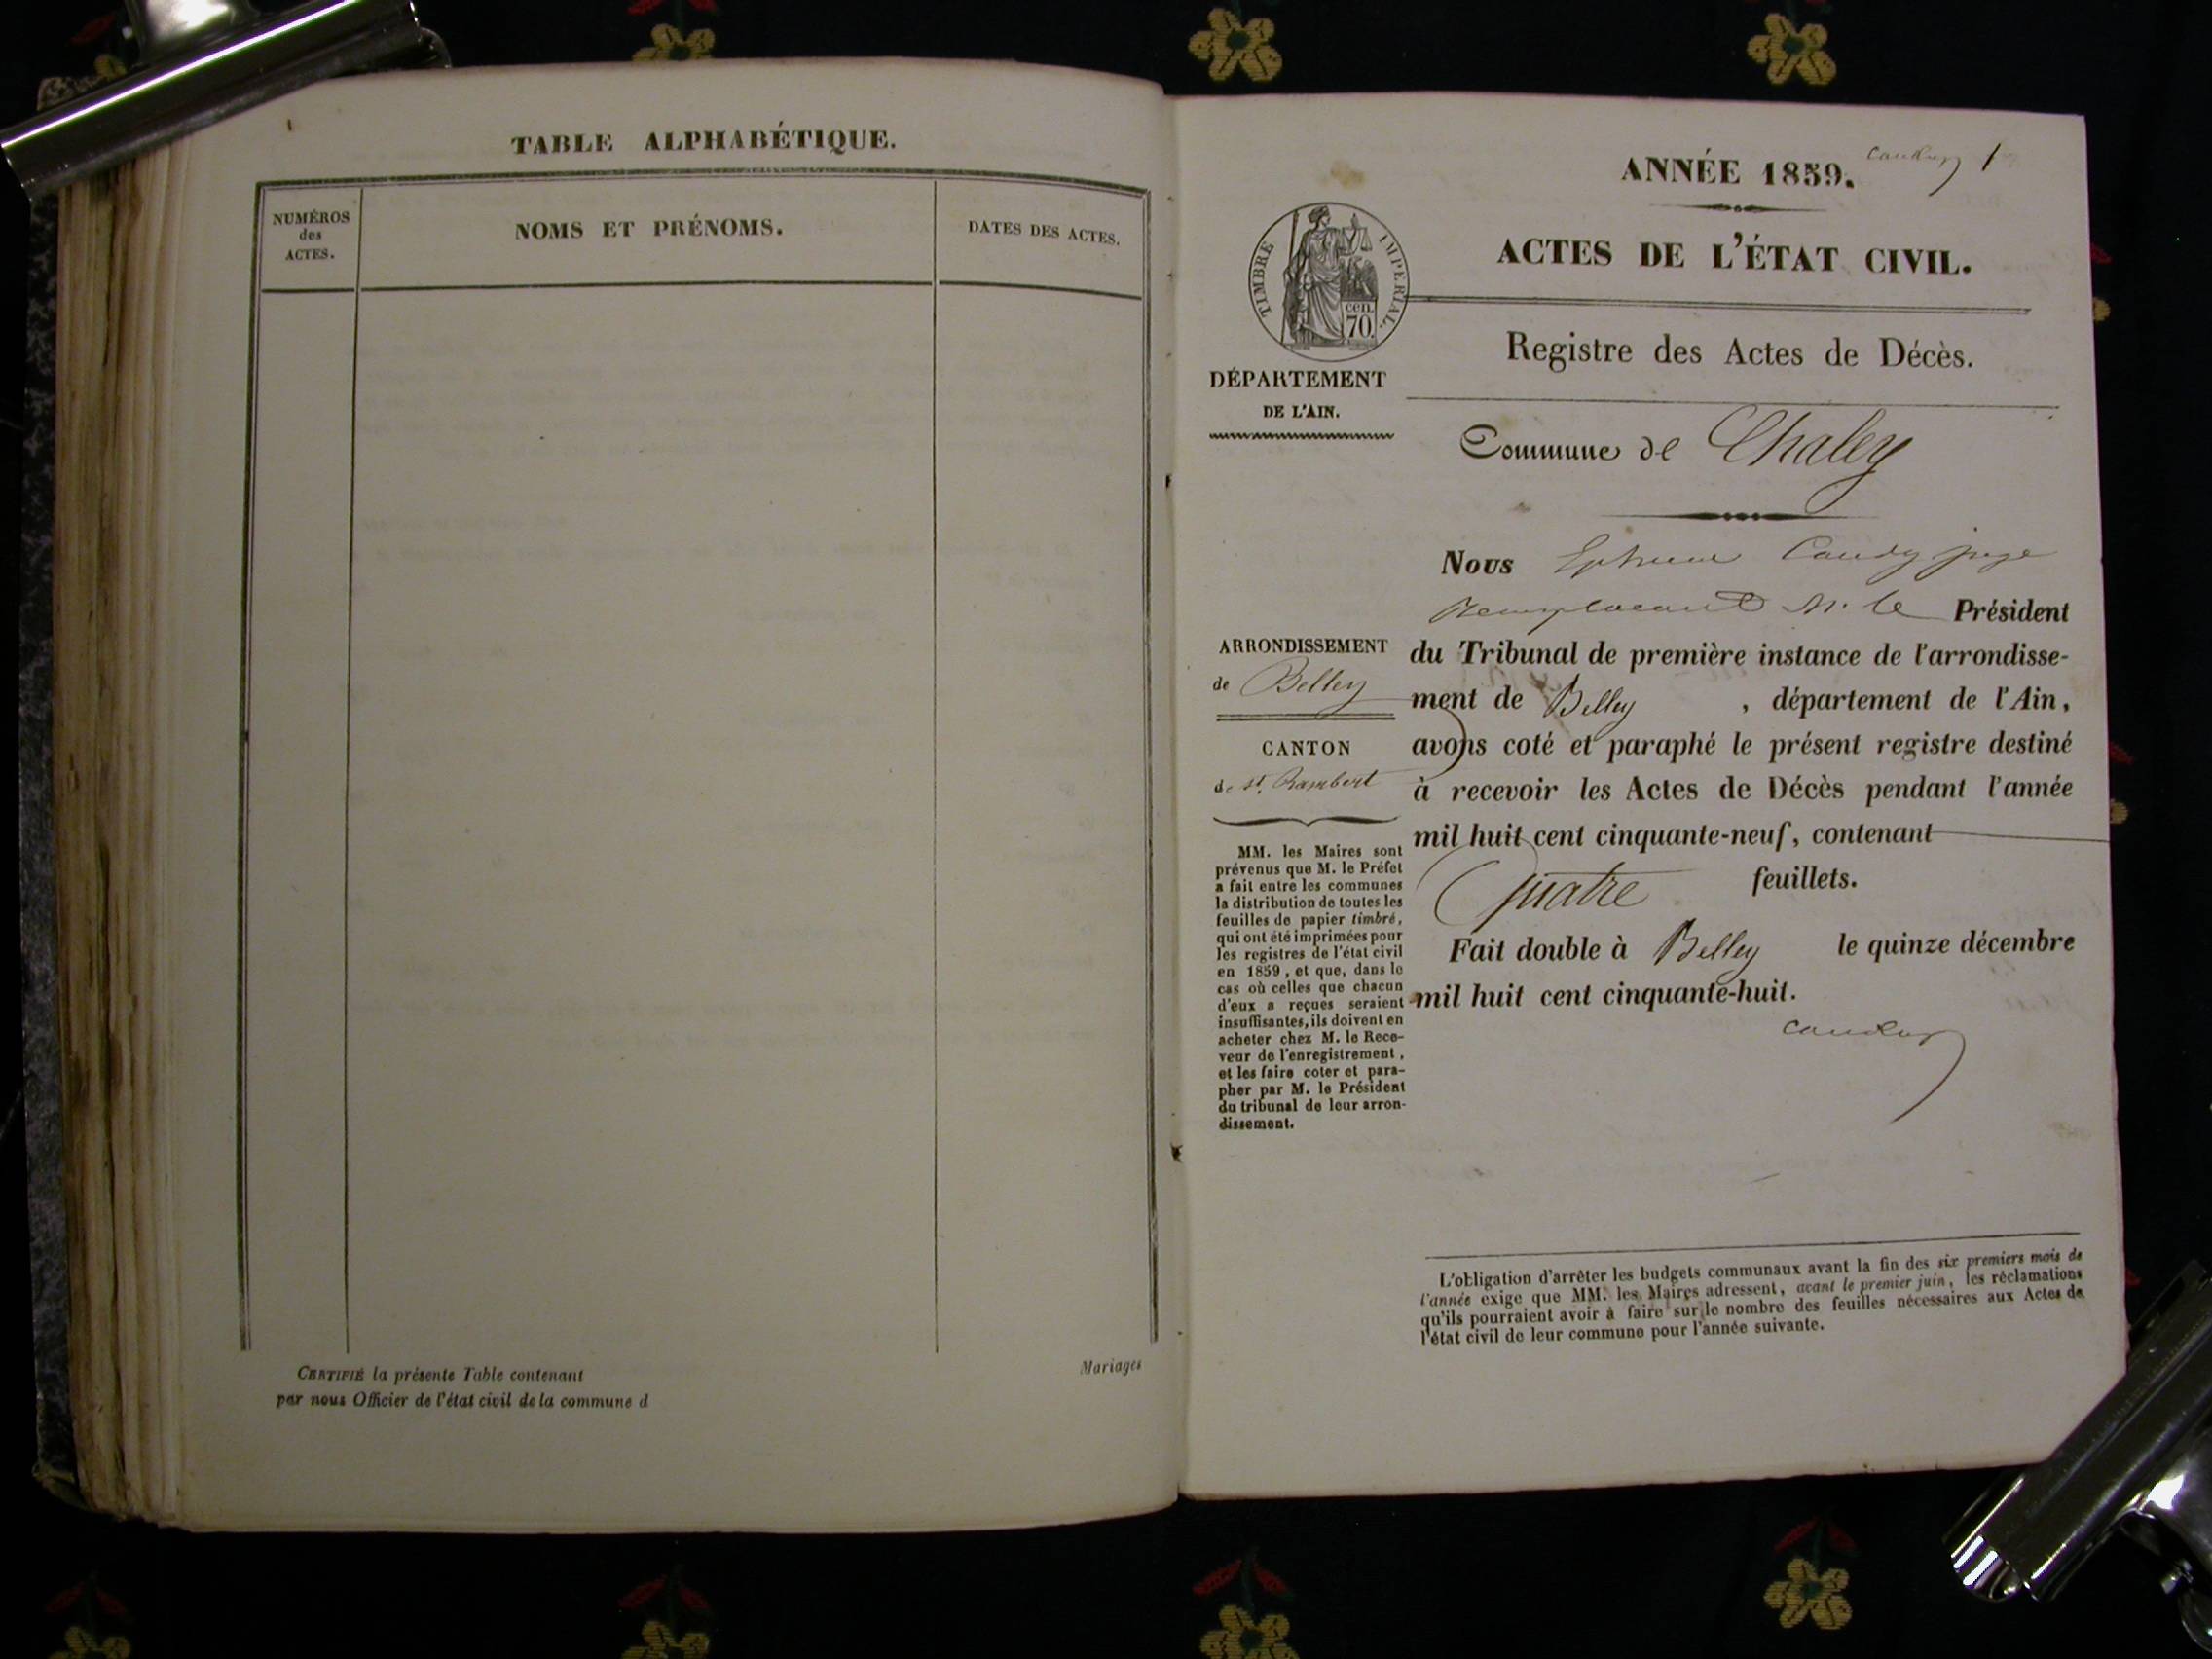 TABLE ALPHABÉTIQUE.
NUMÉROS
des
ACTES.
NOMS ET PRÉNOMS.
DATES DES ACTES.
CERTIFIÉ la présente Table contenant
Mariages
par nous Officier de l'état civil de la commune d
ANNÉE 1859.
1
ACTES DE L'ÉTAT CIVIL.
TIMBRE IMPERIAL.
cen.
70.
Registre des Actes de Décès.
DÉPARTEMENT
DE L'AIN.
Commune de Chaley
ARRONDISSEMENT
de Belley
CANTON
de St. Rambert
MM. les Maires sont
prévenus que M. le Préfet
a fait entre les communes
la distribution de toutes les
feuilles de papier timbré,
qui ont été imprimées pour
les registres de l'état civil
en 1859, et que, dans le
cas où celles que chacun
d'eux a reçues seraient
insuffisantes, ils doivent en
acheter chez M. le Rece-
veur de l'enregistrement,
et les faire coter et para-
pher par M. le Président
du tribunal de leur arron-
dissement.
Nous juge
Remplacant M. le Président
du Tribunal de première instance de l'arrondisse-
ment de Belley, département de l'Ain,
avons coté et paraphé le présent registre destiné
à recevoir les Actes de Décès pendant l'année
mil huit cent cinquante-neuf, contenant
Quatre feuillets.
Fait double à Belley le quinze décembre
mil huit cent cinquante-huit.
L'obligation d'arrêter les budgets communaux avant la fin des six premiers mois de
l'année exige que MM. les Maires adressent, avant le premier juin, les réclamations
qu'ils pourraient avoir à faire sur le nombre des feuilles nécessaires aux Actes de
l'état civil de leur commune pour l'année suivante.